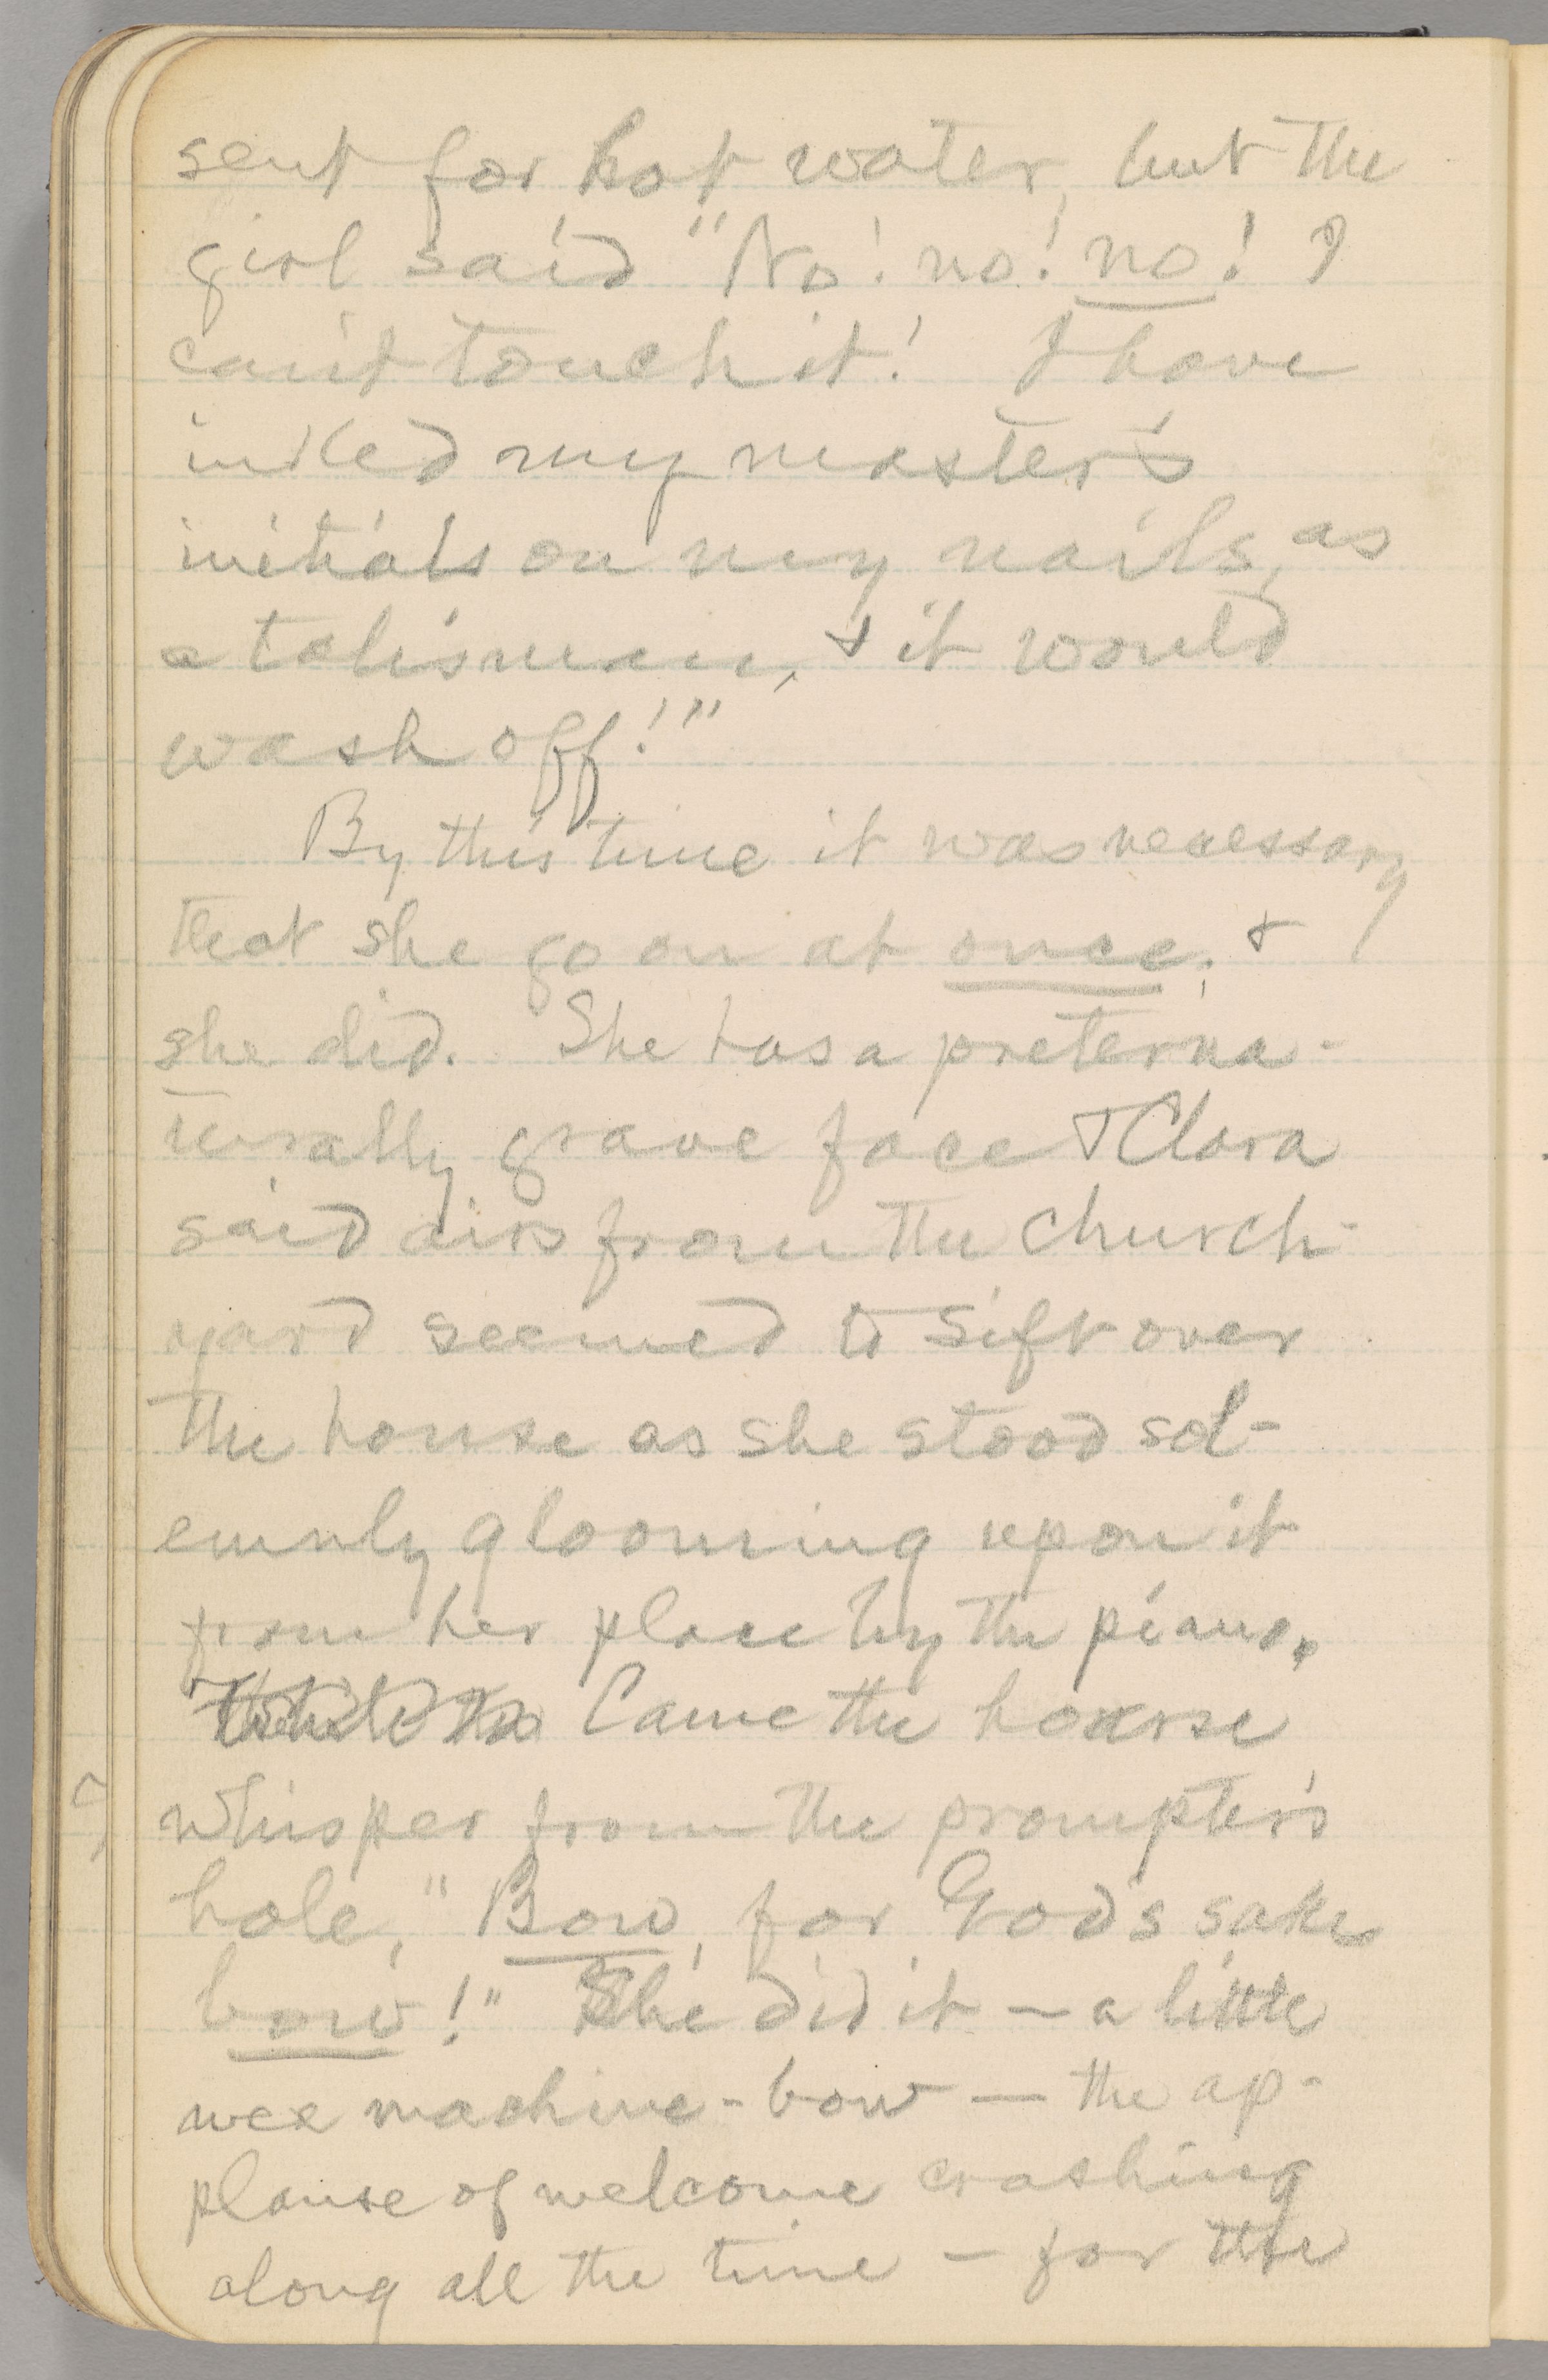 sent for hot water, but the
girl said "No! no! no! I
can't touch it! I have
inked my master's
initials on my nails, as
a talisman, & it would
wash off!"
By this time it was necessary
that she go on at once, &
she did. She has a preterna-
turally grave face & Clara
said airs from the church-
yard seemed to sift over
the house as she stood sol-
emnly glooming upon it
from her place by the piano.
Came the hoarse
whisper from the prompter's
hole, "Bow, for God's sake
bow!" She did it — a little
wee machine-bow — the ap-
plause of welcome crashing
along all the time — for the